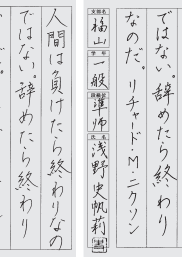 ではない。辞めたら終わり
なのだ。リチャード・M・ニクソン
支部名 福山 学年 一般 段級位 準師 氏名 浅野史帆莉 書
人間は負けたら終わりなの
ではない。辞めたら終わり